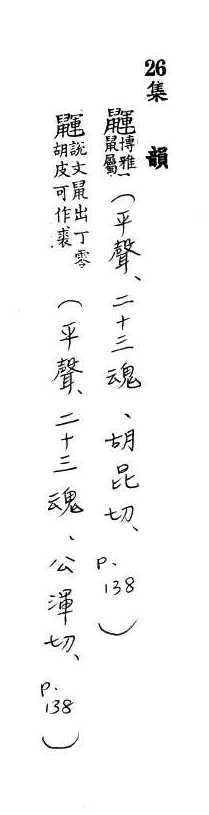 26集 韻
鼲博雅鼠屬(平聲、二十三魂、胡昆切、p.138)
鼲說文鼠出丁零胡皮可作裘.(平聲、二十三魂、公渾切、p.138)